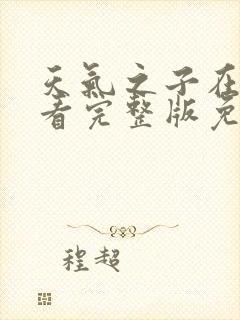 天氣之子在
看完整版免
程超